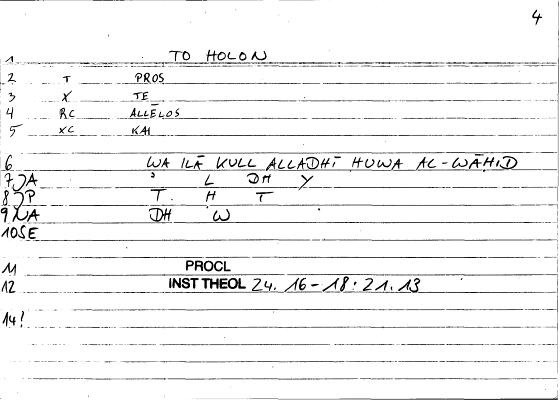 4
1 TO HOLON
2 T PROS
3 X TE
4 RC ALLĒLOS
5 XC KAI
6 WA ILĀ KULL ALLADHĪ HUWA AL-WĀḤID
7 JA ʾ L DH Y
8 JP T H T
9 NA DH W
10 SE
11 PROCL
12 INST THEOL 24. 16-18: 21. 13
14!